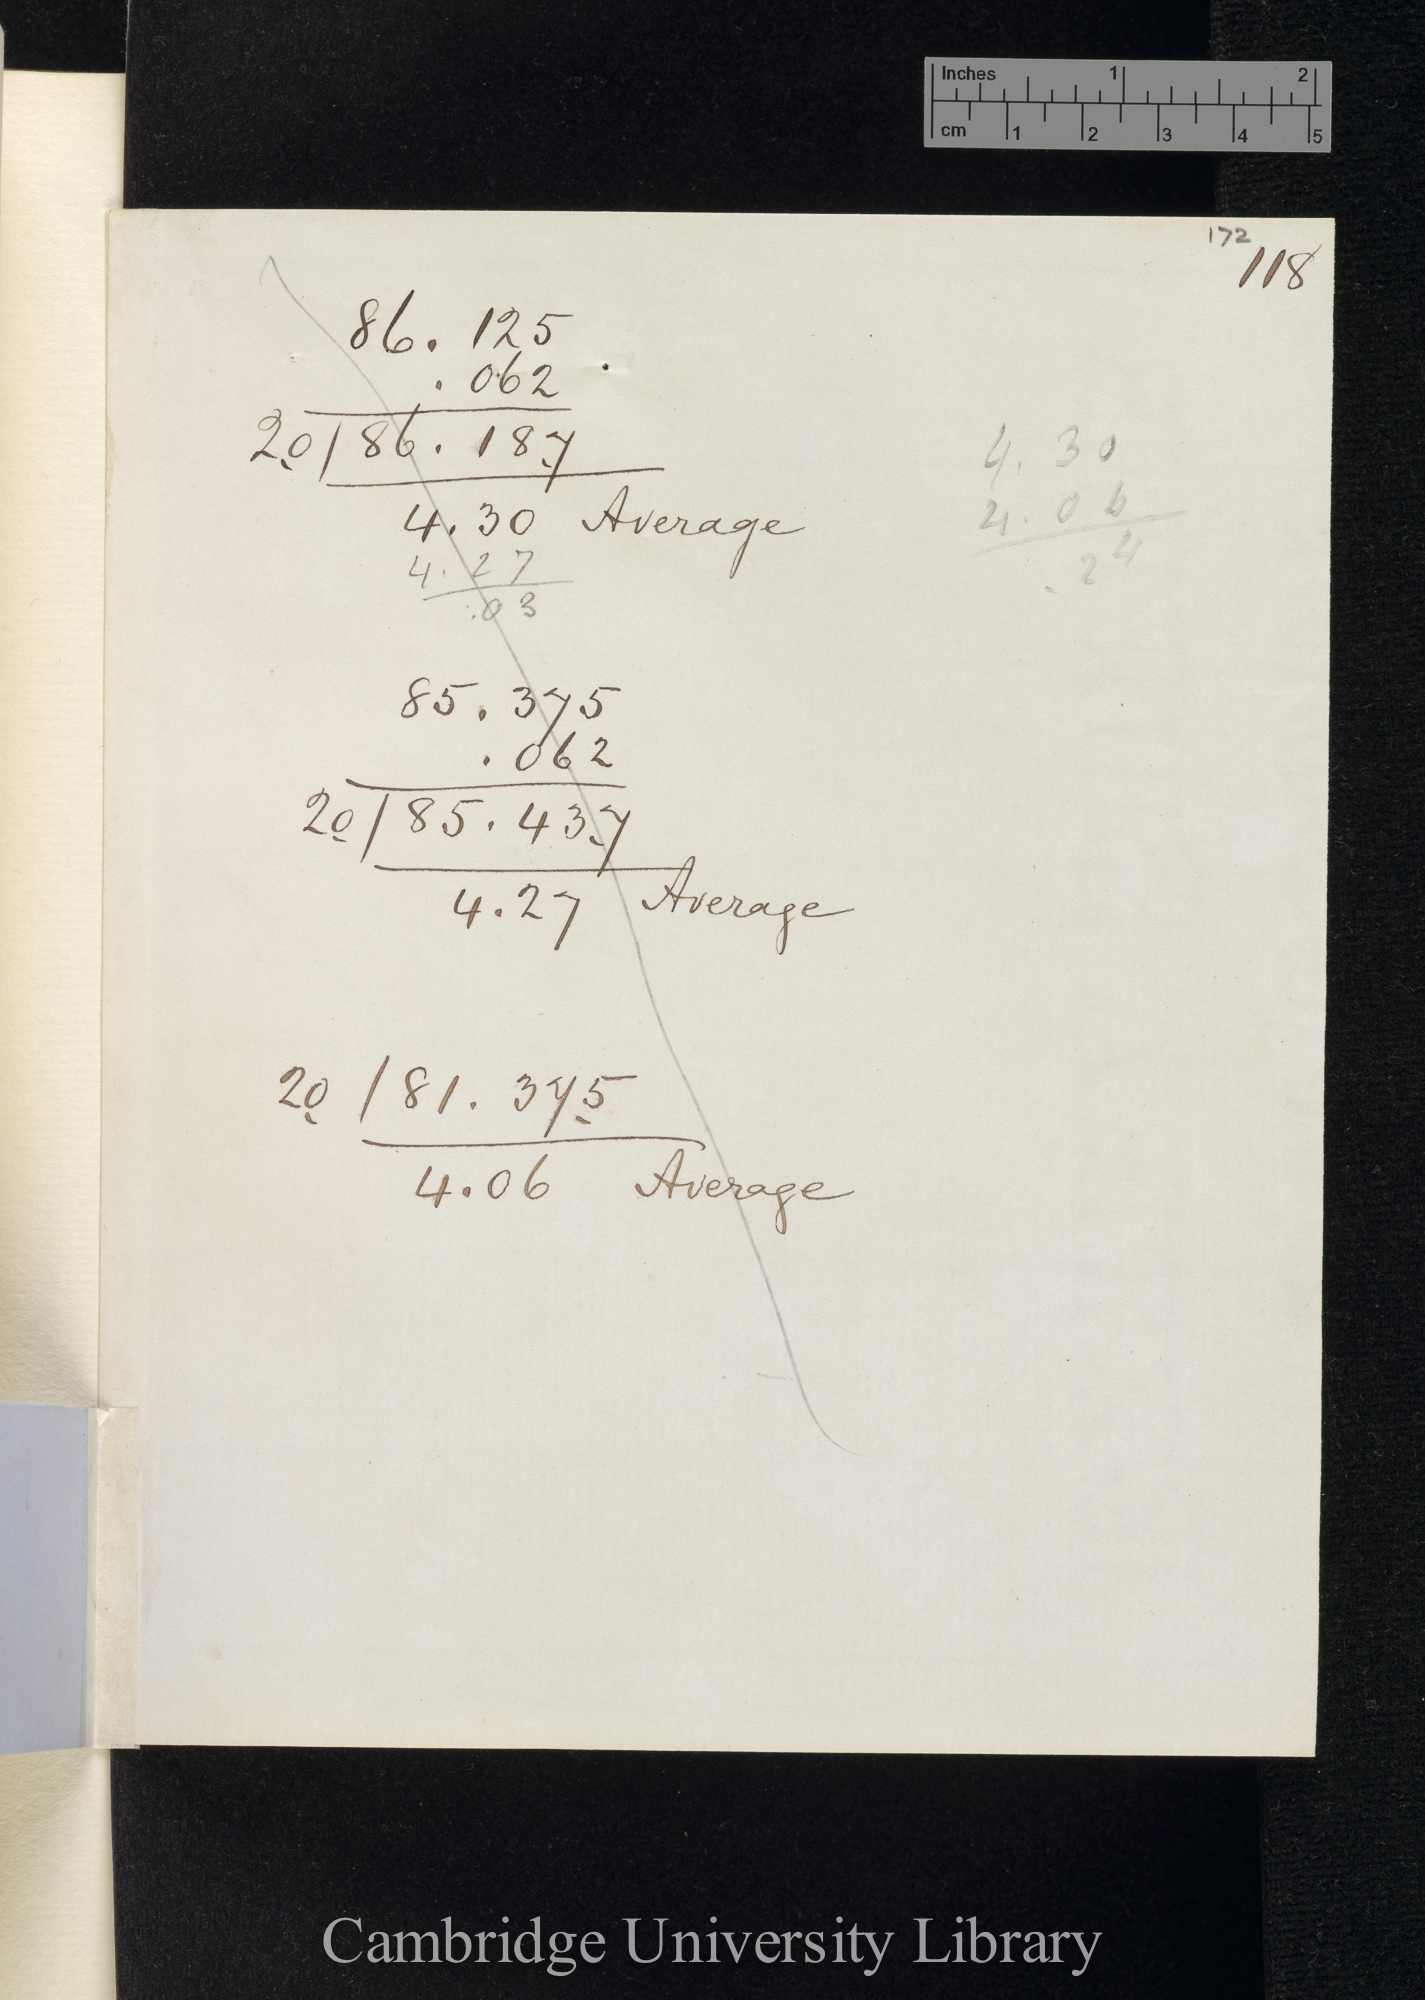 Inches 1 2
cm 1 2 3 4 5
172
118
86.125
.062
20/86.187
4.30 Average
4.27
.03
4.30
4.06
.24
85.375
.062
20/85.437
4.27 Average
20/81.375
4.06 Average
Cambridge University Library